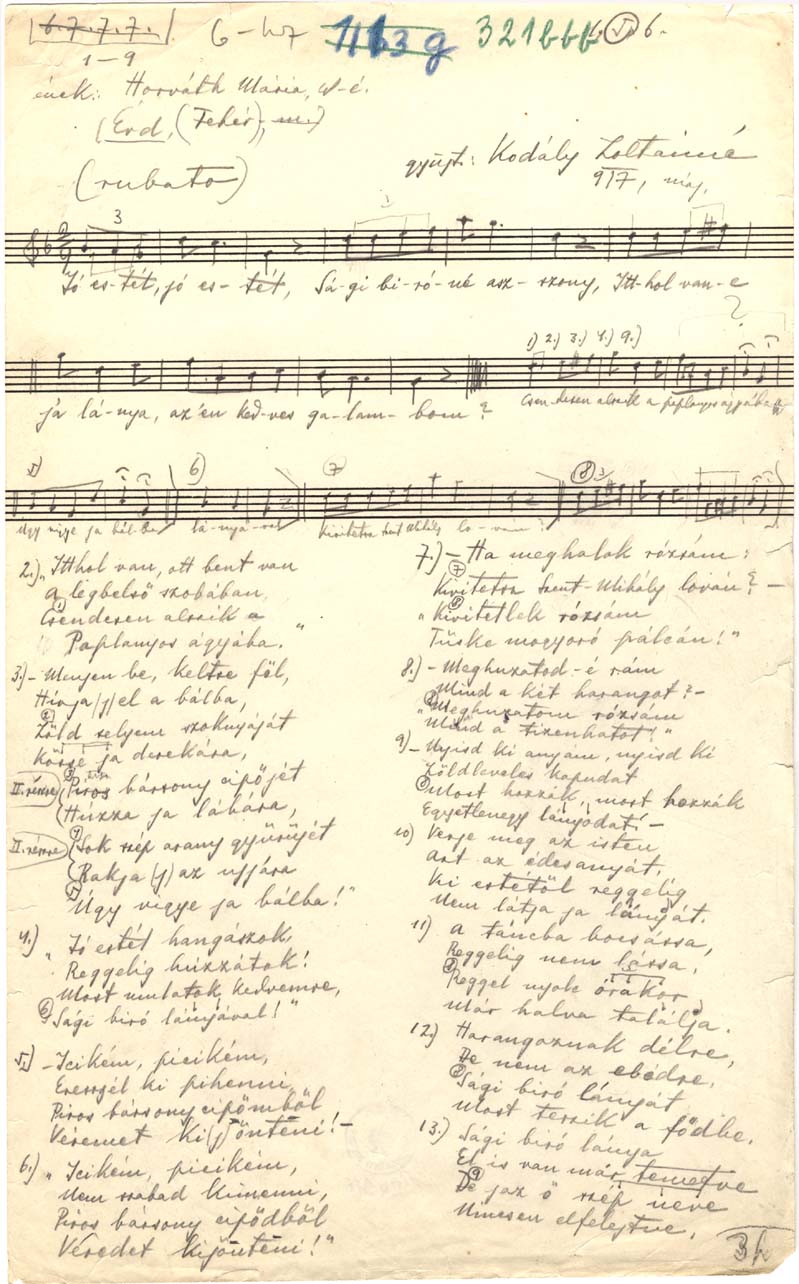 6.7.7.7. 6-h7 1163g 321bbb 6.
1-9
ének: Horváth Mária,
(Érd, (Fehér), m.)
gyüjt.: Kodály Zoltánné
917, máj.
(rubato)
3
Jó es-tét, jó es-tét, Sá-gi bi-ró-né asz-szony, Itt-hol van-e
?
1) 2.) 3.) 4.) 9.)
ja lá-nya, az én ked-ves ga-lam-bom? Csen-desen alszik a paplanyos ágyába
5) 6) 7 8 3
Úgy vigye ja bálba lá-nyá-val Kivitetsz Szent Mihály lo-ván?
2.) „Itthol van, ott bent van
A legbelső szobában,
1 Csendesen alszik a
Paplanyos ágyába."
3.) - Menjen be, keltse föl,
Hívja (j) el a bálba,
2 Zöld selyem szoknyáját
Kösse ja derekára,
II. részre 3 Piros bársony cipőjét
Húzza ja lábára,
II. részre 4 Sok szép arany gyürüjét
Rakja (j) az ujjára
5 Úgy vigye ja bálba!"
4.) „Jó estét hangászok,
Reggelig húzzátok!
Most mulatok kedvemre,
6 Sági biró lányával!"
5.) - Icikém, picikém,
Eresszél ki pihenni,
Piros bársony cipőmből
Véremet ki (j) önteni! -
6.) „Icikém, picikém,
Nem szabad kimenni,
Piros bársony cipődből
Véredet kijönteni!"
7.) - Ha meghalok rózsám:
7 Kivitetsz Szent-Mihály lován? -
„8 Kivitetlek rózsám
Tüske mogyoró pálcán!"
8.) - Meghuzatod-é rám
Mind a két harangot? -
„Meghuzatom rózsám
Mind a tizenhatot!"
9) - Nyisd ki anyám, nyisd ki
Zöldleveles kapudat
Most hozzák, most hozzák
Egyetlenegy lányodat! -
10) Verje meg az isten
Azt az édesanyát,
Ki estétől reggelig
Nem látja ja lányát.
11) A táncba bocsássa,
Reggelig nem lássa,
Reggel nyolc órakor
Már halva találja.
12.) Harangoznak délre,
De nem az ebédre,
Sági biró lányát
Most teszik a födbe.
13.) Sági biró lánya
El is van már temetve
9 De jaz ő szép neve
Nincsen elfelejtve.